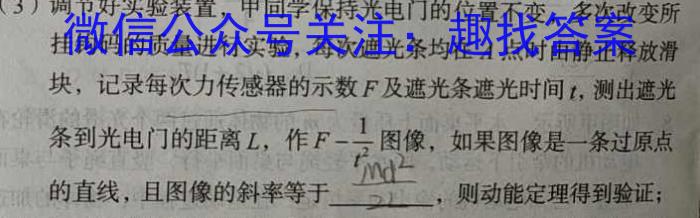 (3)调节好实验装置,甲同学保持光电门的位置不变,多次改变所
微信公众号关注:趣找答案
挂钩码的质量进行实验,每次遮光条均在 点时由静止释放滑
块,记录每次力传感器的示数F及遮光条遮光时间t,测出遮光
条到光电门的距离L,作F-1/t²图像,如果图像是一条过原点
的直线,且图像的斜率等于 Md²/2L ,则动能定理得到验证;